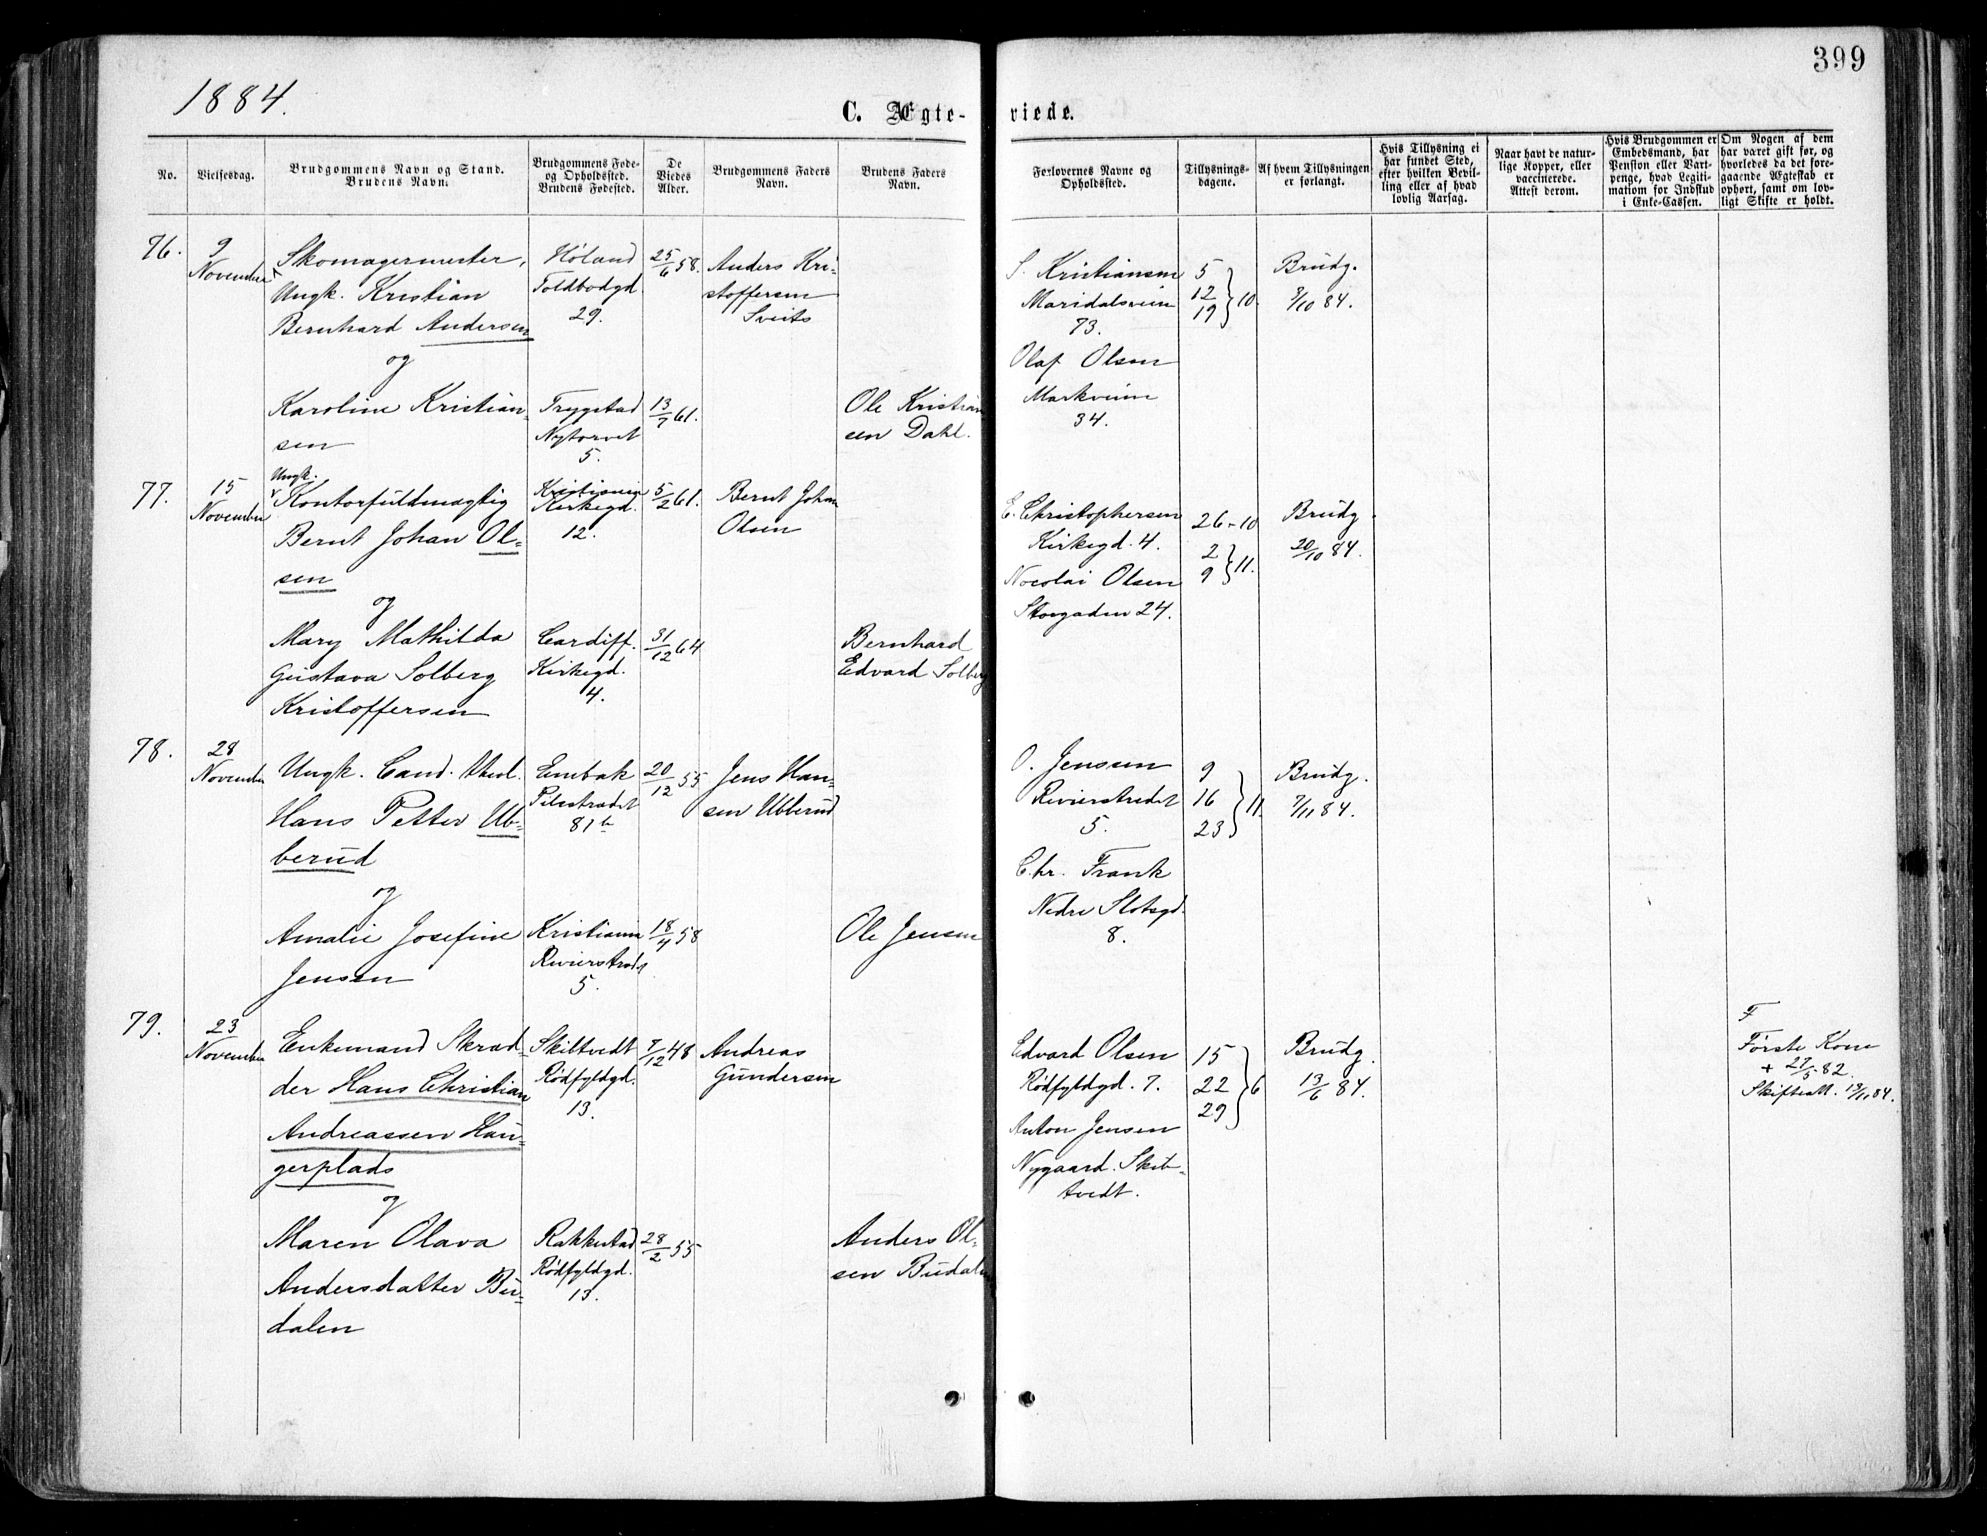 399
1884.
C. Ægte-
viede.
No.
Vielsesdag.
Brudgommens Navn og Stand.
Brudens Navn.
Brudgommens Føde-
og Opholdssted.
Brudens Fødested.
De
Viedes
Alder.
Brudgommens Faders
Navn.
Brudens Faders
Navn.
Forlovernes Navne og
Opholdssted.
Tillysnings-
dagene.
Af hvem Tillysningen
er forlangt.
Hvis Tillysning ei
har fundet Sted,
efter hvilken Bevil-
ling eller af hvad
lovlig Aarsag.
Naar havt de natur-
lige Kopper, eller
vaccinerede.
Attest derom.
Hvis Brudgommen er
Embedsmand, har
Pension eller Vart-
penge, hvad Legiti-
mation for Indskud
i Enke-Cassen.
Om Nogen af dem
har været gift før, og
hvorledes da det fore-
gaaende Ægteskab er
ophørt, samt om lov-
ligt Skifte er holdt.
76.
9
November
Skomagermester,
Ungk. Kristian
Bernhard Andersen
og
Karoline Kristian-
sen
Høland
Toldbodgd
29.
Trygstad
Nytorvet
5.
25/6 58.
13/7 61.
Anders Kri-
stoffersen
Sveits
Ole Kristian
sen Dahl.
S. Kristiansen
Maridalsveien
73.
Olaf Olsen
Markveien
34.
5
12
19
10.
Brudg.
9/10 84.
77.
15
November
Ungk.
Kontorfuldmægtig
Bernt Johan Ol-
sen
og
Mary Mathilda
Gustava Solberg
Kristoffersen
Kristiania
Kirkegd.
12.
Cardiff.
Kirkegd.
4.
5/2 61.
31/12 64
Bernt Johan
Olsen
Bernhard
Edvard Solberg
E. Christophersen
Kirkegd. 4.
Nocolai Olsen
Storgaden 24.
26-10
2
9
11.
Brudg.
20/10 84.
78.
28
November
Ungk. Cand. theol.
Hans Petter Ub-
berud
og
Amalie Josefine
Jensen
Embak
Pilestrædet
81b
Kristiania
Revierstrædet
5.
20/12 55
18/4 58
Jens Han-
sen Ubberud
Ole Jensen
O. Jensen
Revierstrædet
5.
Chr. Frank
Nedre Slotsgd.
8.
9
16
23
11.
Brudg.
7/11 84.
79.
23
November
Enkemand Skræd-
der Hans Christian
Andreassen Hau-
gerplads
og
Maren Olava
Andersdatter Bu-
dalen
Skibtvedt
Rødfyldgd.
13.
Rakkestad
Rødfyldgd.
13.
7/12 48
28/2 55
Andreas
Gundersen
Anders Ol-
sen Budalen
Edvard Olsen
Rødfyldgd. 7.
Anton Jensen
Nygaard. Skib-
tvedt.
15
22
29
6
Brudg.
13/6 84.
F
Første Kone
+ 27/5 82.
Skifteatt. 13/11 84.